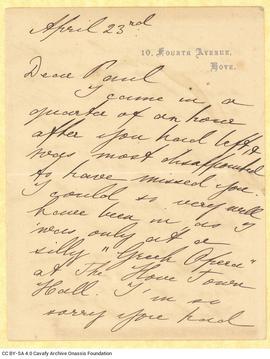 April 23rd
10, Fourth Avenue,
Hove.
Dear Paul
I came in a
quarter of an hour
after you had left, &
was most disappointed
to have missed you.
I could so very well
have been in as I
was only at a
silly "Greek Opera"
at The Hove Town
Hall. I'm so
sorry you had
CC BY-SA 4.0 Cavafy Archive Onassis Foundation